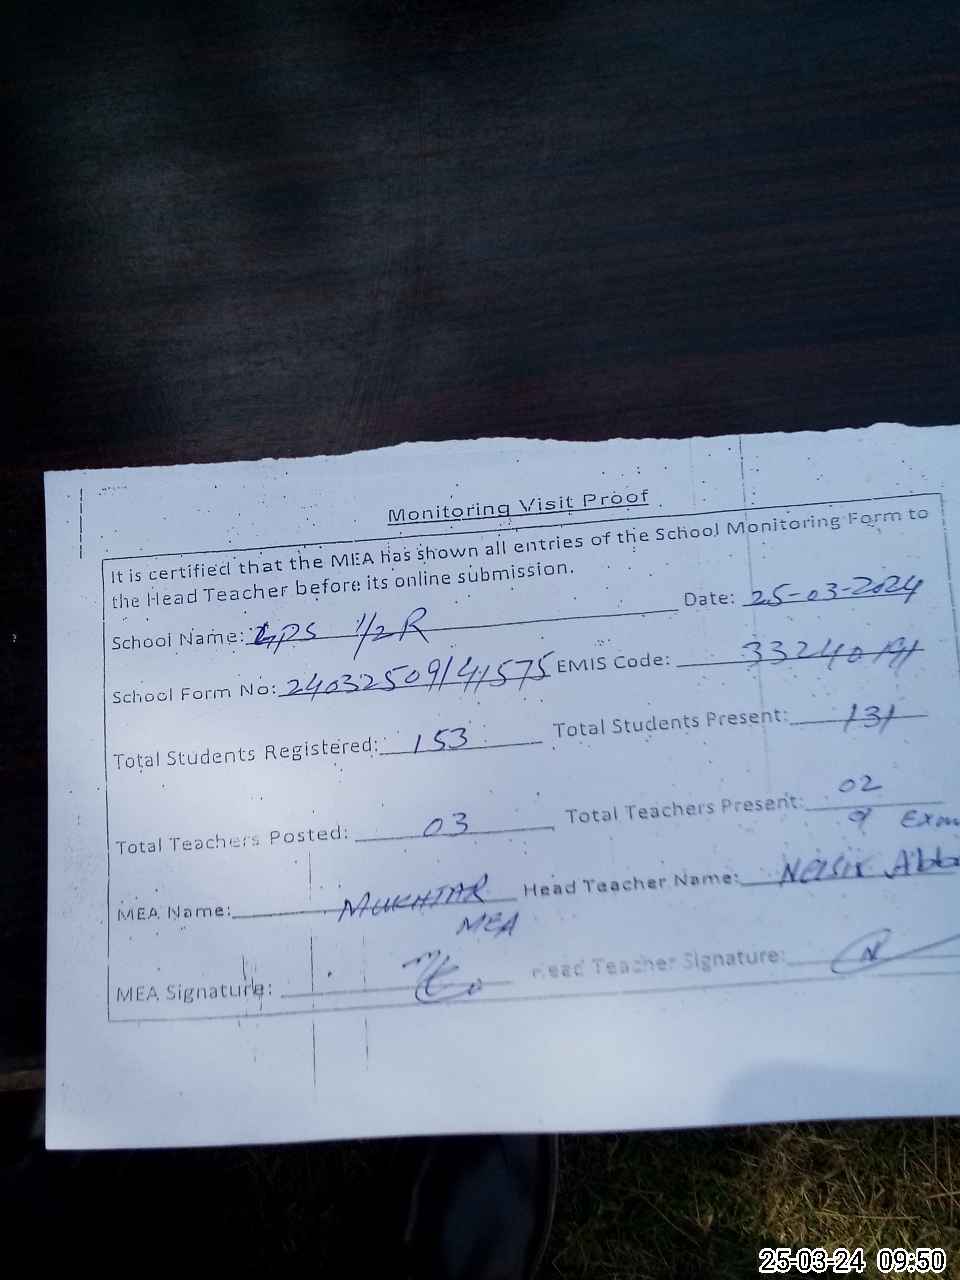 Monitoring Visit Proof
It is certified that the MEA has shown all entries of the School Monitoring Form to
the Head Teacher before its online submission.
School Name: GPS 1/2R Date: 25-03-2024
School Form No: 24032509141575 EMIS Code: 33240
Total Students Registered: 153 Total Students Present: 131
Total Teachers Posted: 03 Total Teachers Present: 02
MEA Name: MUKHTAR Head Teacher Name: Nasir
MEA
MEA Signature: Head Teacher Signature:
25-03-24 09:50